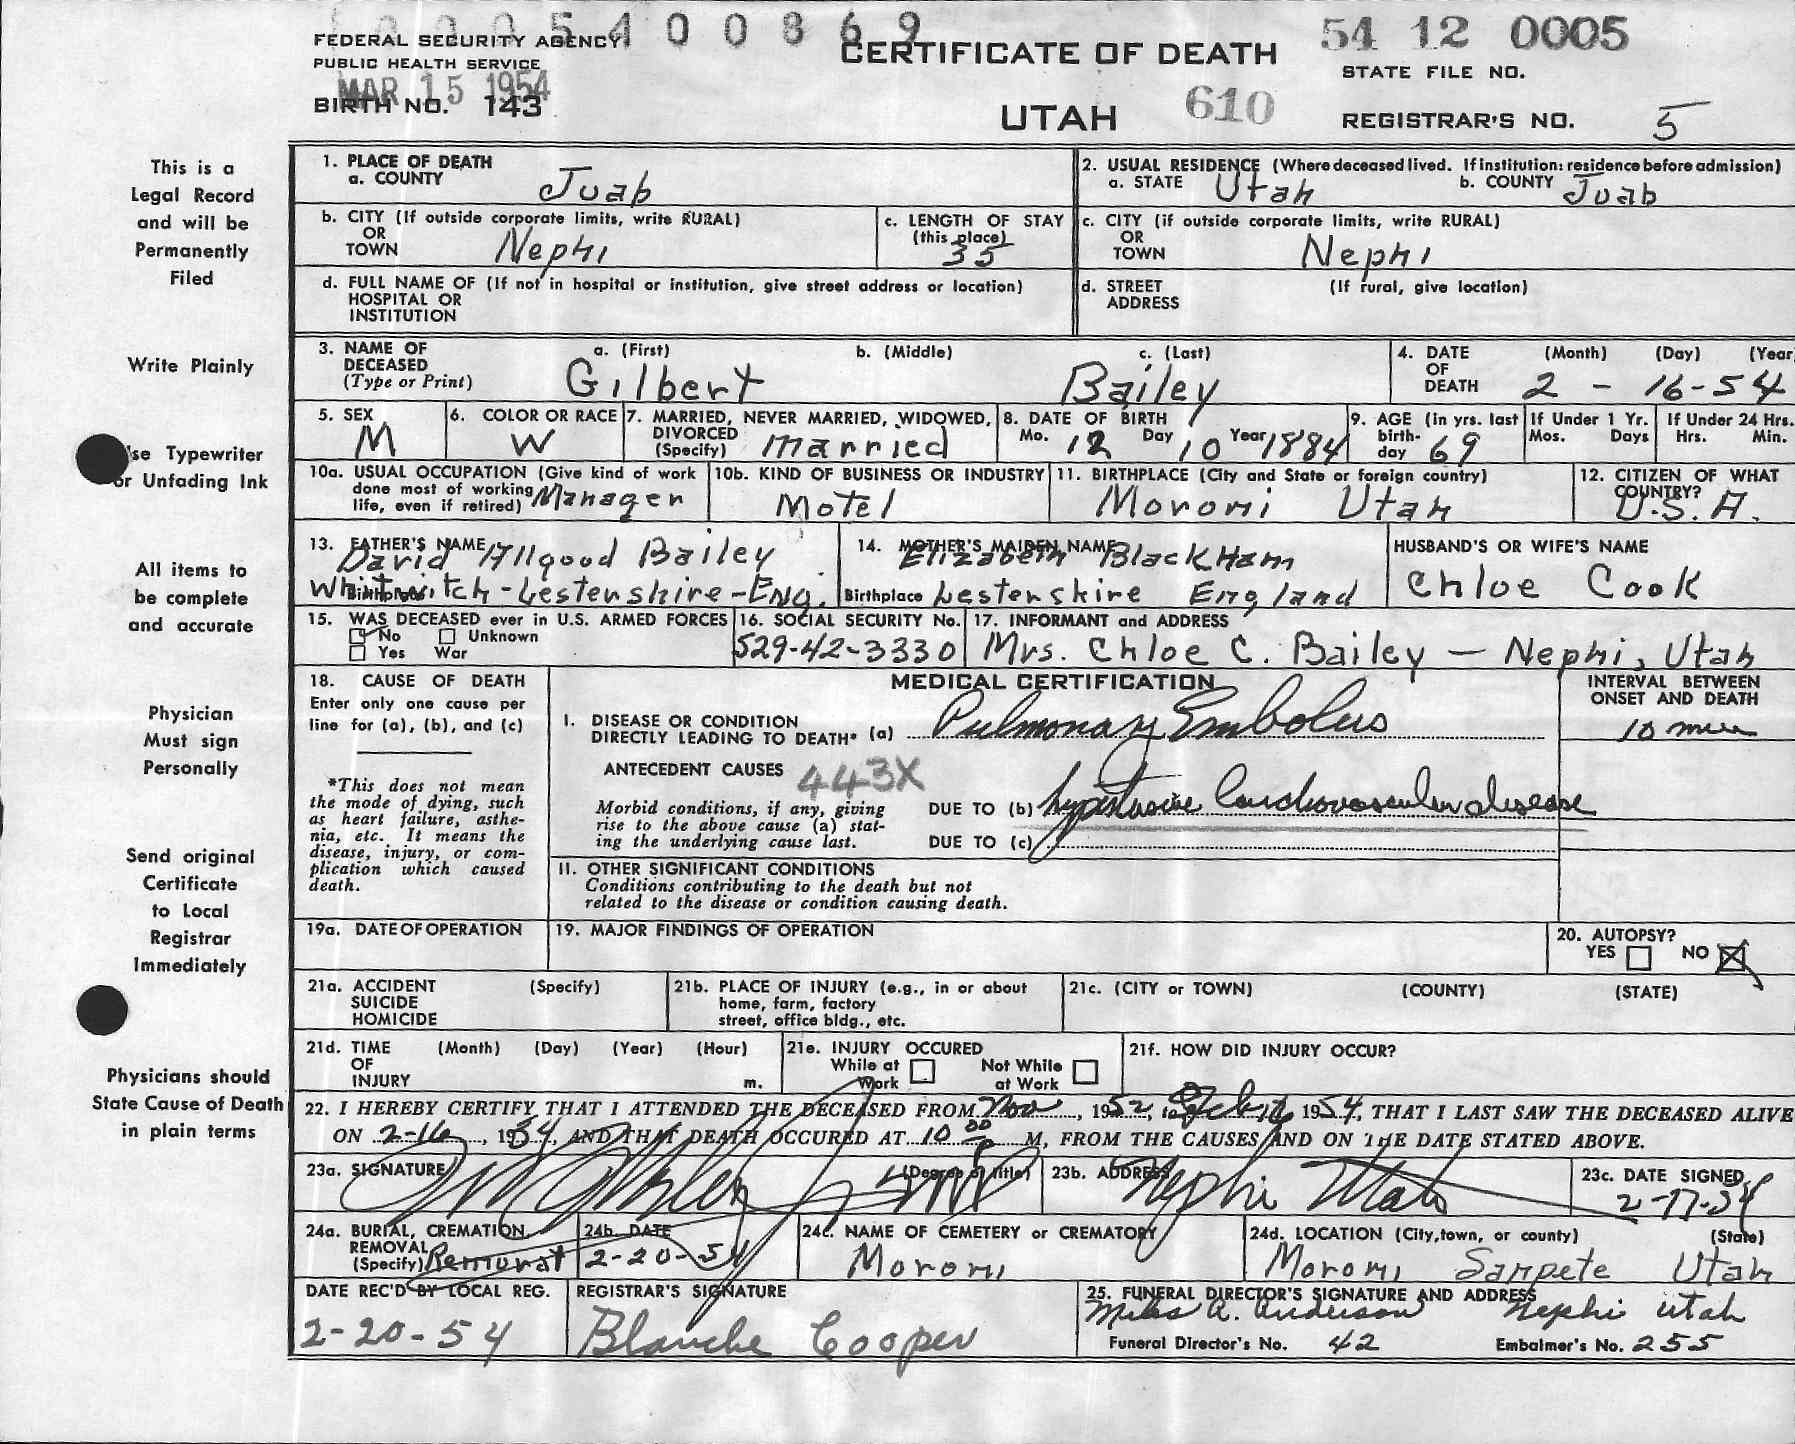 0005400869
FEDERAL SECURITY AGENCY
PUBLIC HEALTH SERVICE
MAR 15 1954
BIRTH NO. 143
CERTIFICATE OF DEATH
UTAH 610
54 12 0005
STATE FILE NO.
REGISTRAR'S NO. 5
This is a
Legal Record
and will be
Permanently
Filed
Write Plainly
se Typewriter
or Unfading Ink
All items to
be complete
and accurate
Physician
Must sign
Personally
Send original
Certificate
to Local
Registrar
Immediately
Physicians should
State Cause of Death
in plain terms
1. PLACE OF DEATH
a. COUNTY Juab
2. USUAL RESIDENCE (Where deceased lived. If institution: residence before admission)
a. STATE Utah b. COUNTY Juab
b. CITY (If outside corporate limits, write RURAL)
OR
TOWN Nephi
c. LENGTH OF STAY
(this place)
35
c. CITY (if outside corporate limits, write RURAL)
OR
TOWN Nephi
d. FULL NAME OF (If not in hospital or institution, give street address or location)
HOSPITAL OR
INSTITUTION
d. STREET (If rural, give location)
ADDRESS
3. NAME OF a. (First) b. (Middle) c. (Last)
DECEASED
(Type or Print) Gilbert Bailey
4. DATE (Month) (Day) (Year
OF
DEATH 2 - 16-54
5. SEX
M
6. COLOR OR RACE
W
7. MARRIED, NEVER MARRIED, WIDOWED,
DIVORCED
(Specify) Married
8. DATE OF BIRTH
Mo. 12 Day 10 Year 1884
9. AGE (in yrs. last
birth-
day 69
If Under 1 Yr.
Mos. Days
If Under 24 Hrs.
Hrs. Min.
10a. USUAL OCCUPATION (Give kind of work
done most of working
life, even if retired) Manager
10b. KIND OF BUSINESS OR INDUSTRY
Motel
11. BIRTHPLACE (City and State or foreign country)
Moroni Utah
12. CITIZEN OF WHAT
COUNTRY?
U.S.A.
13. FATHER'S NAME
David Allgood Bailey
Birthplace Whitwitch-Lestershire-Eng.
14. MOTHER'S MAIDEN NAME
Elizabeth BlackHam
Birthplace Lestershire England
HUSBAND'S OR WIFE'S NAME
Chloe Cook
15. WAS DECEASED ever in U.S. ARMED FORCES
No Unknown
Yes War
16. SOCIAL SECURITY No.
529-42-3330
17. INFORMANT and ADDRESS
Mrs. Chloe C. Bailey — Nephi, Utah
18. CAUSE OF DEATH
Enter only one cause per
line for (a), (b), and (c)
*This does not mean
the mode of dying, such
as heart failure, asthe-
nia, etc. It means the
disease, injury, or com-
plication which caused
death.
MEDICAL CERTIFICATION
I. DISEASE OR CONDITION
DIRECTLY LEADING TO DEATH* (a) Pulmonary Embolus
ANTECEDENT CAUSES 443X
Morbid conditions, if any, giving
rise to the above cause (a) stat-
ing the underlying cause last.
DUE TO (b) hypertensive Cardiovascular disease
DUE TO (c)
II. OTHER SIGNIFICANT CONDITIONS
Conditions contributing to the death but not
related to the disease or condition causing death.
INTERVAL BETWEEN
ONSET AND DEATH
10 min
19a. DATE OF OPERATION
19. MAJOR FINDINGS OF OPERATION
20. AUTOPSY?
YES NO
21a. ACCIDENT (Specify)
SUICIDE
HOMICIDE
21b. PLACE OF INJURY (e.g., in or about
home, farm, factory
street, office bldg., etc.
21c. (CITY or TOWN) (COUNTY) (STATE)
21d. TIME (Month) (Day) (Year) (Hour)
OF
INJURY m.
21e. INJURY OCCURED
While at Work Not While at Work
21f. HOW DID INJURY OCCUR?
22. I HEREBY CERTIFY THAT I ATTENDED THE DECEASED FROM Nov, 1952, to Feb 16 1954, THAT I LAST SAW THE DECEASED ALIVE
ON 2-16, 1954, AND THAT DEATH OCCURED AT 10 00 P M, FROM THE CAUSES AND ON THE DATE STATED ABOVE.
23a. SIGNATURE (Degree or title)
23b. ADDRESS
Nephi Utah
23c. DATE SIGNED
2-17-54
24a. BURIAL, CREMATION,
REMOVAL
(Specify) Removal
24b. DATE
2-20-54
24c. NAME OF CEMETERY or CREMATORY
Moroni
24d. LOCATION (City, town, or county) (State)
Moroni Sanpete Utah
DATE REC'D BY LOCAL REG.
2-20-54
REGISTRAR'S SIGNATURE
Blanche Cooper
25. FUNERAL DIRECTOR'S SIGNATURE AND ADDRESS
Miles A. Anderson Nephi Utah
Funeral Director's No. 42 Embalmer's No. 255